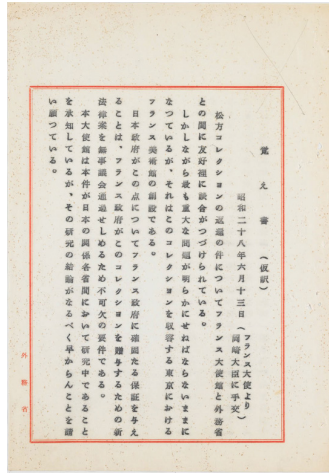 覚え書 (仮訳)
昭和二十八年六月十三日
(フランス大使より
岡崎大臣に手交)
松方コレクションの返還の件についてフランス大使館と外務省
との間に友好裡に談合がつづけられている。
しかしながら最も重大な問題が明らかにせねばならないままに
なつているが、それはこのコレクションを収容する東京における
フランス美術館の創設である。
日本政府がこの点についてフランス政府に確固たる保証を与え
ることは、フランス政府がこのコレクションを贈与するための新
法律案を無事議会通過せしめるため不可欠の要件である。
本大使館は本件が日本の関係各省間において研究中であること
を承知しているが、その研究の結論がなるべく早からんことを請
い願つている。
外務省